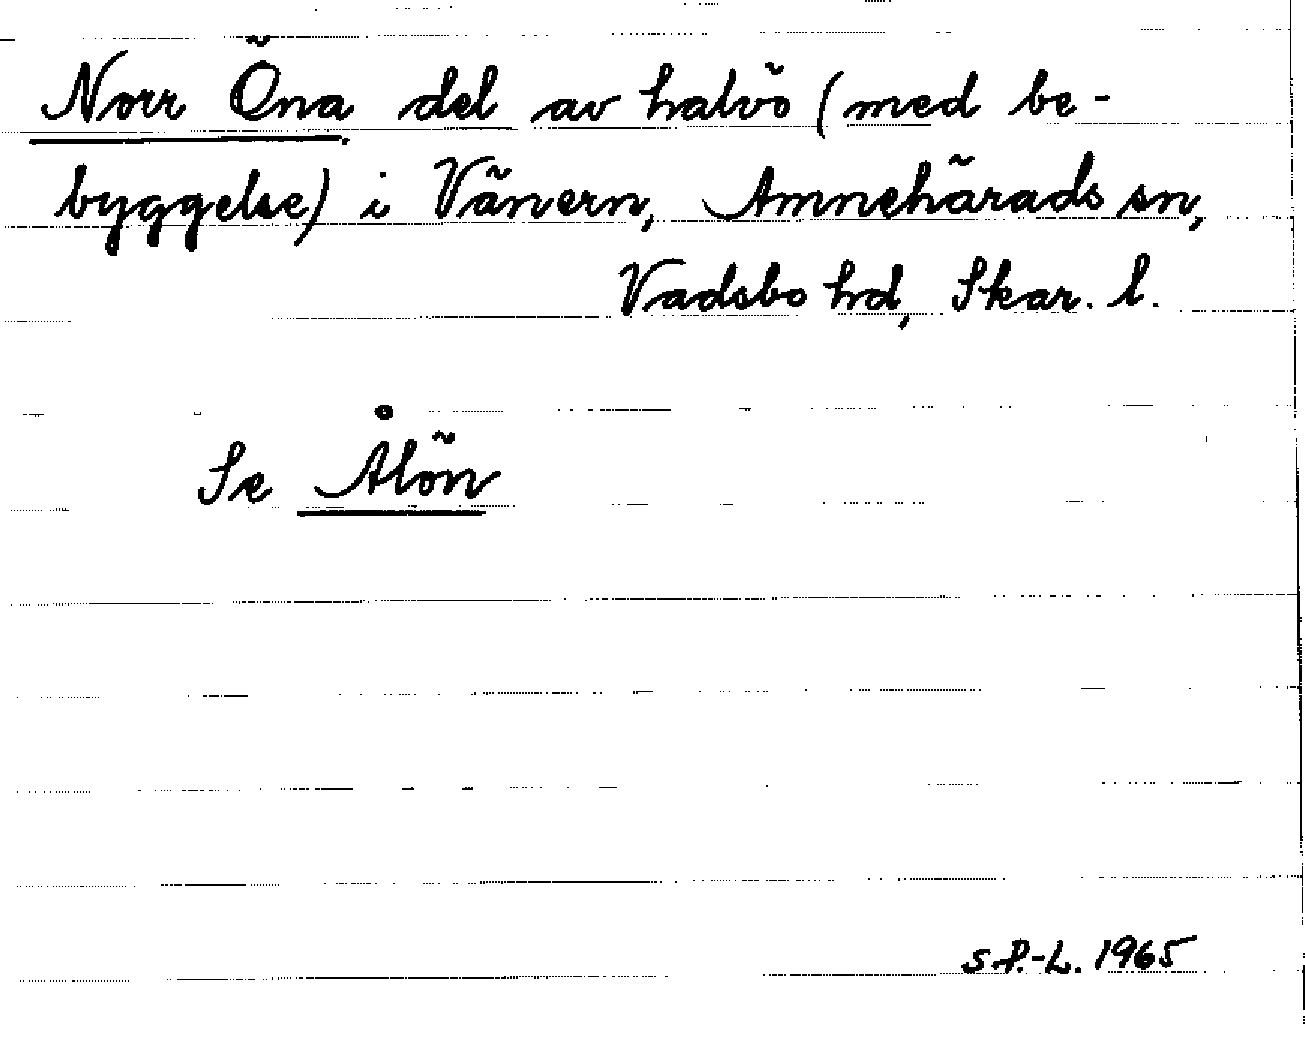 Norr Öna del av halvö (med be-
byggelse) i Vänern, Amnehärads sn,
Vadsbo hd, Skar. l.
Se Ålön
S.P.-L. 1965